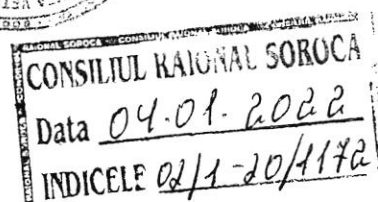 CONSILIUL RAIONAL SOROCA
Data 04.01.2022
INDICELE 02/1-20/1172